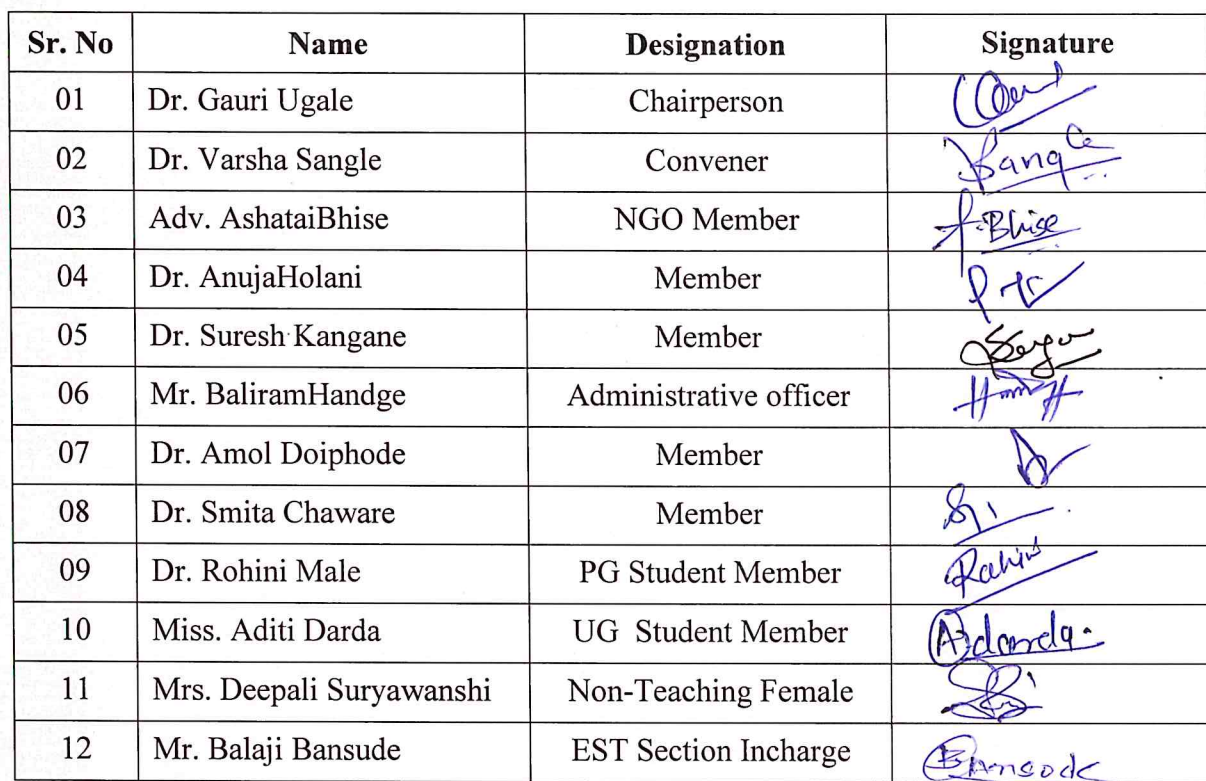 Sr. No Name Designation Signature
01 Dr. Gauri Ugale Chairperson
02 Dr. Varsha Sangle Convener Sangle
03 Adv. AshataiBhise NGO Member A. Bhise
04 Dr. AnujaHolani Member
05 Dr. Suresh Kangane Member
06 Mr. BaliramHandge Administrative officer
07 Dr. Amol Doiphode Member
08 Dr. Smita Chaware Member
09 Dr. Rohini Male PG Student Member Rohini
10 Miss. Aditi Darda UG Student Member A.darda.
11 Mrs. Deepali Suryawanshi Non-Teaching Female
12 Mr. Balaji Bansude EST Section Incharge Bansode